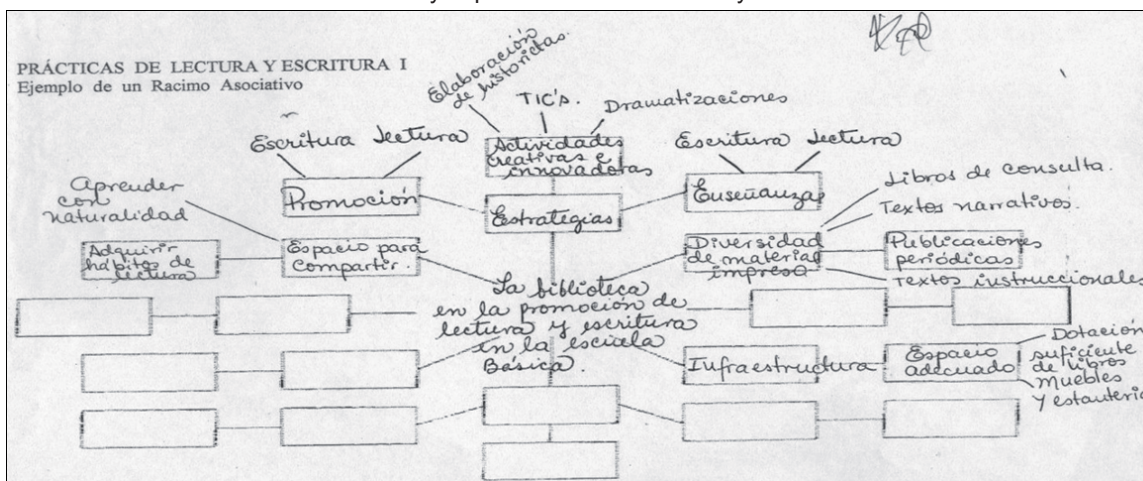 PRÁCTICAS DE LECTURA Y ESCRITURA I
Ejemplo de un Racimo Asociativo
Elaboración
de historietas.
TIC'S.
Dramatizaciones
Escritura
Lectura
Actividades
creativas e
innovadoras
Escritura
Lectura
Promoción
Estrategias
Enseñanza
Libros de consulta.
Textos narrativos.
Aprender
con
naturalidad
Adquirir
hábitos de
lectura
Espacio para
Compartir.
Diversidad
de material
impreso
Publicaciones
periódicas
Textos instruccionales
La biblioteca
en la promoción de
lectura y escritura
en la escuela
Básica.
Infraestructura
Espacio
adecuado
Dotación
suficiente
de libros
Muebles
Y estantería